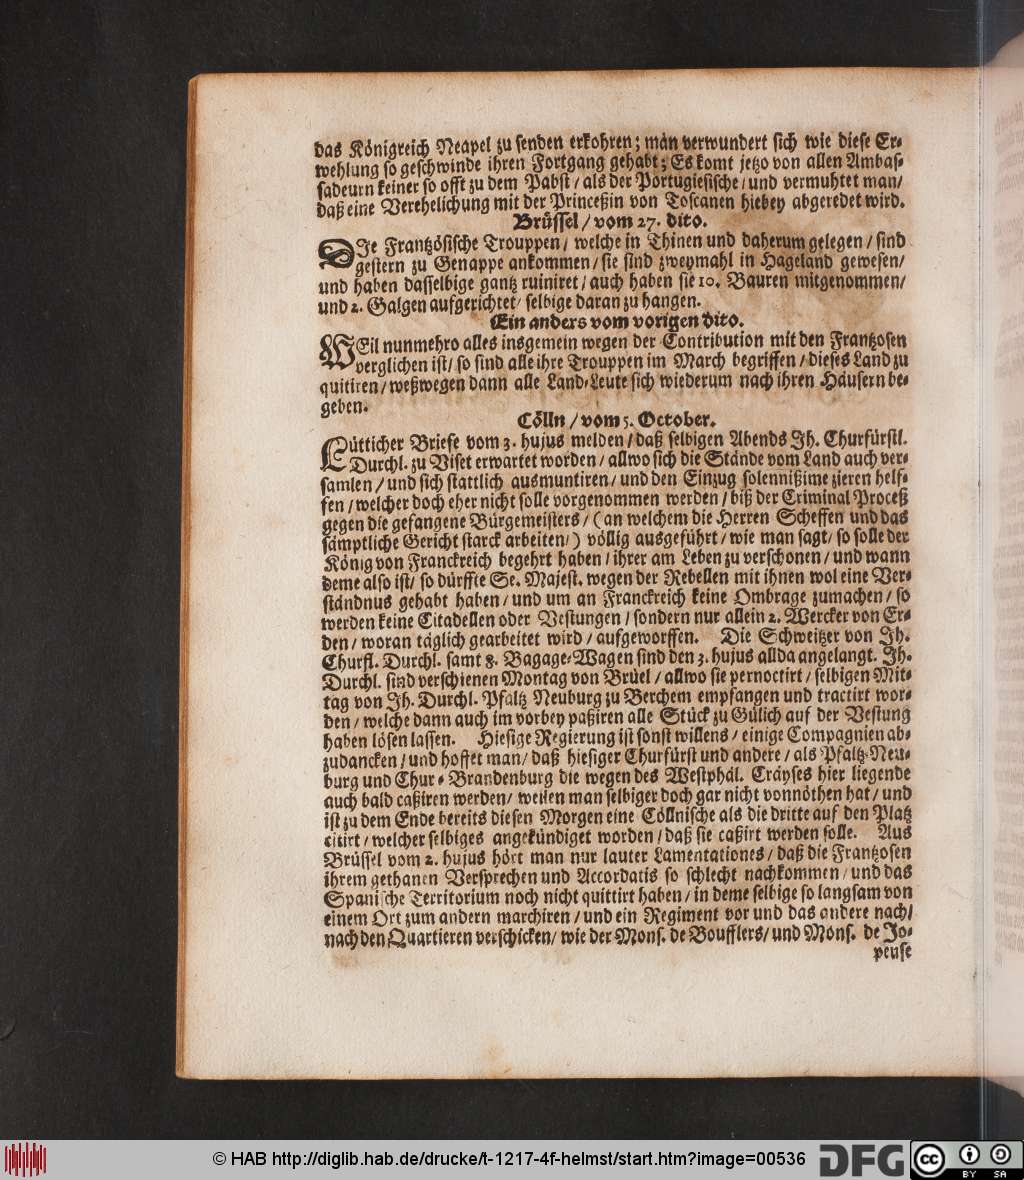 das Königreich Neapel zu senden erkohren; man verwundert sich wie diese Er-
wehlung so geschwinde ihren Fortgang gehabt; Es komt jetzo von allen Ambas-
sadeurn keiner so offt zu dem Pabst / als der Portugiesische / und vermuhtet man/
daß eine Verehelichung mit der Princeßin von Toscanen hiebey abgeredet wird.
Brüssel / vom 27. dito.
DIe Frantzösische Trouppen / welche in Thinen und daherum gelegen / sind
gestern zu Genappe ankommen / sie sind zweymahl in Hageland gewesen/
und haben dasselbige gantz ruiniret / auch haben sie 10. Bauren mitgenommen/
und 2. Galgen aufgerichtet/ selbige daran zu hangen.
Ein anders vom vorigen dito.
WEil nunmehro alles insgemein wegen der Contribution mit den Frantzosen
verglichen ist/ so sind alle ihre Trouppen im March begriffen / dieses Land zu
quitiren / weßwegen dann alle Land-Leute sich wiederum nach ihren Häusern be-
geben.
Cölln / vom 5. October.
Lütticher Briefe vom 3. hujus melden / daß selbigen Abends Ih. Churfürstl.
Durchl. zu Viset erwartet worden / allwo sich die Stände vom Land auch ver-
samlen / und sich stattlich ausmuntiren / und den Einzug solennißime zieren helf-
fen / welcher doch eher nicht solle vorgenommen werden / biß der Criminal Proceß
gegen die gefangene Bürgemeisters / (an welchem die Herren Scheffen und das
sämptliche Gericht starck arbeiten/) völlig ausgeführt / wie man sagt/ so solle der
König von Franckreich begehrt haben / ihrer am Leben zu verschonen / und wann
deme also ist/ so dürffte Se. Majest. wegen der Rebellen mit ihnen wol eine Ver-
ständnus gehabt haben / und um an Franckreich keine Ombrage zumachen / so
werden keine Citadellen oder Vestungen / sondern nur allein 2. Wercker von Er-
den / woran täglich gearbeitet wird / aufgeworffen. Die Schweitzer von Ih.
Churfl. Durchl. samt 8. Bagage-Wagen sind den 3. hujus allda angelangt. Ih.
Durchl. sind verschienen Montag von Brüel / allwo sie pernoctirt / selbigen Mit-
tag von Ih. Durchl. Pfaltz Neuburg zu Berchem empfangen und tractirt wor-
den / welche dann auch im vorbey paßiren alle Stück zu Gülich auf der Vestung
haben lösen lassen. Hiesige Regierung ist sonst willens / einige Compagnien ab-
zudancken / und hoffet man / daß hiesiger Churfürst und andere / als Pfaltz-Neu-
burg und Chur-Brandenburg die wegen des Westphäl. Cräyses hier liegende
auch bald caßiren werden / weilen man selbiger doch gar nicht vonnöthen hat / und
ist zu dem Ende bereits diesen Morgen eine Cöllnische als die dritte auf den Platz
citirt / welcher selbiges angekündiget worden / daß sie caßirt werden solle. Aus
Brüssel vom 2. hujus hört man nur lauter Lamentationes / daß die Frantzosen
ihrem gethanen Versprechen und Accordatis so schlecht nachkommen / und das
Spanische Territorium noch nicht quittirt haben / in deme selbige so langsam von
einem Ort zum andern marchiren / und ein Regiment vor und das andere nach/
nach den Quartieren verschicken / wie der Mons. de Boufflers / und Mons. de Jo-
peuse
© HAB http://diglib.hab.de/drucke/t-1217-4f-helmst/start.htm?image=00536
DFG
cc
BY SA